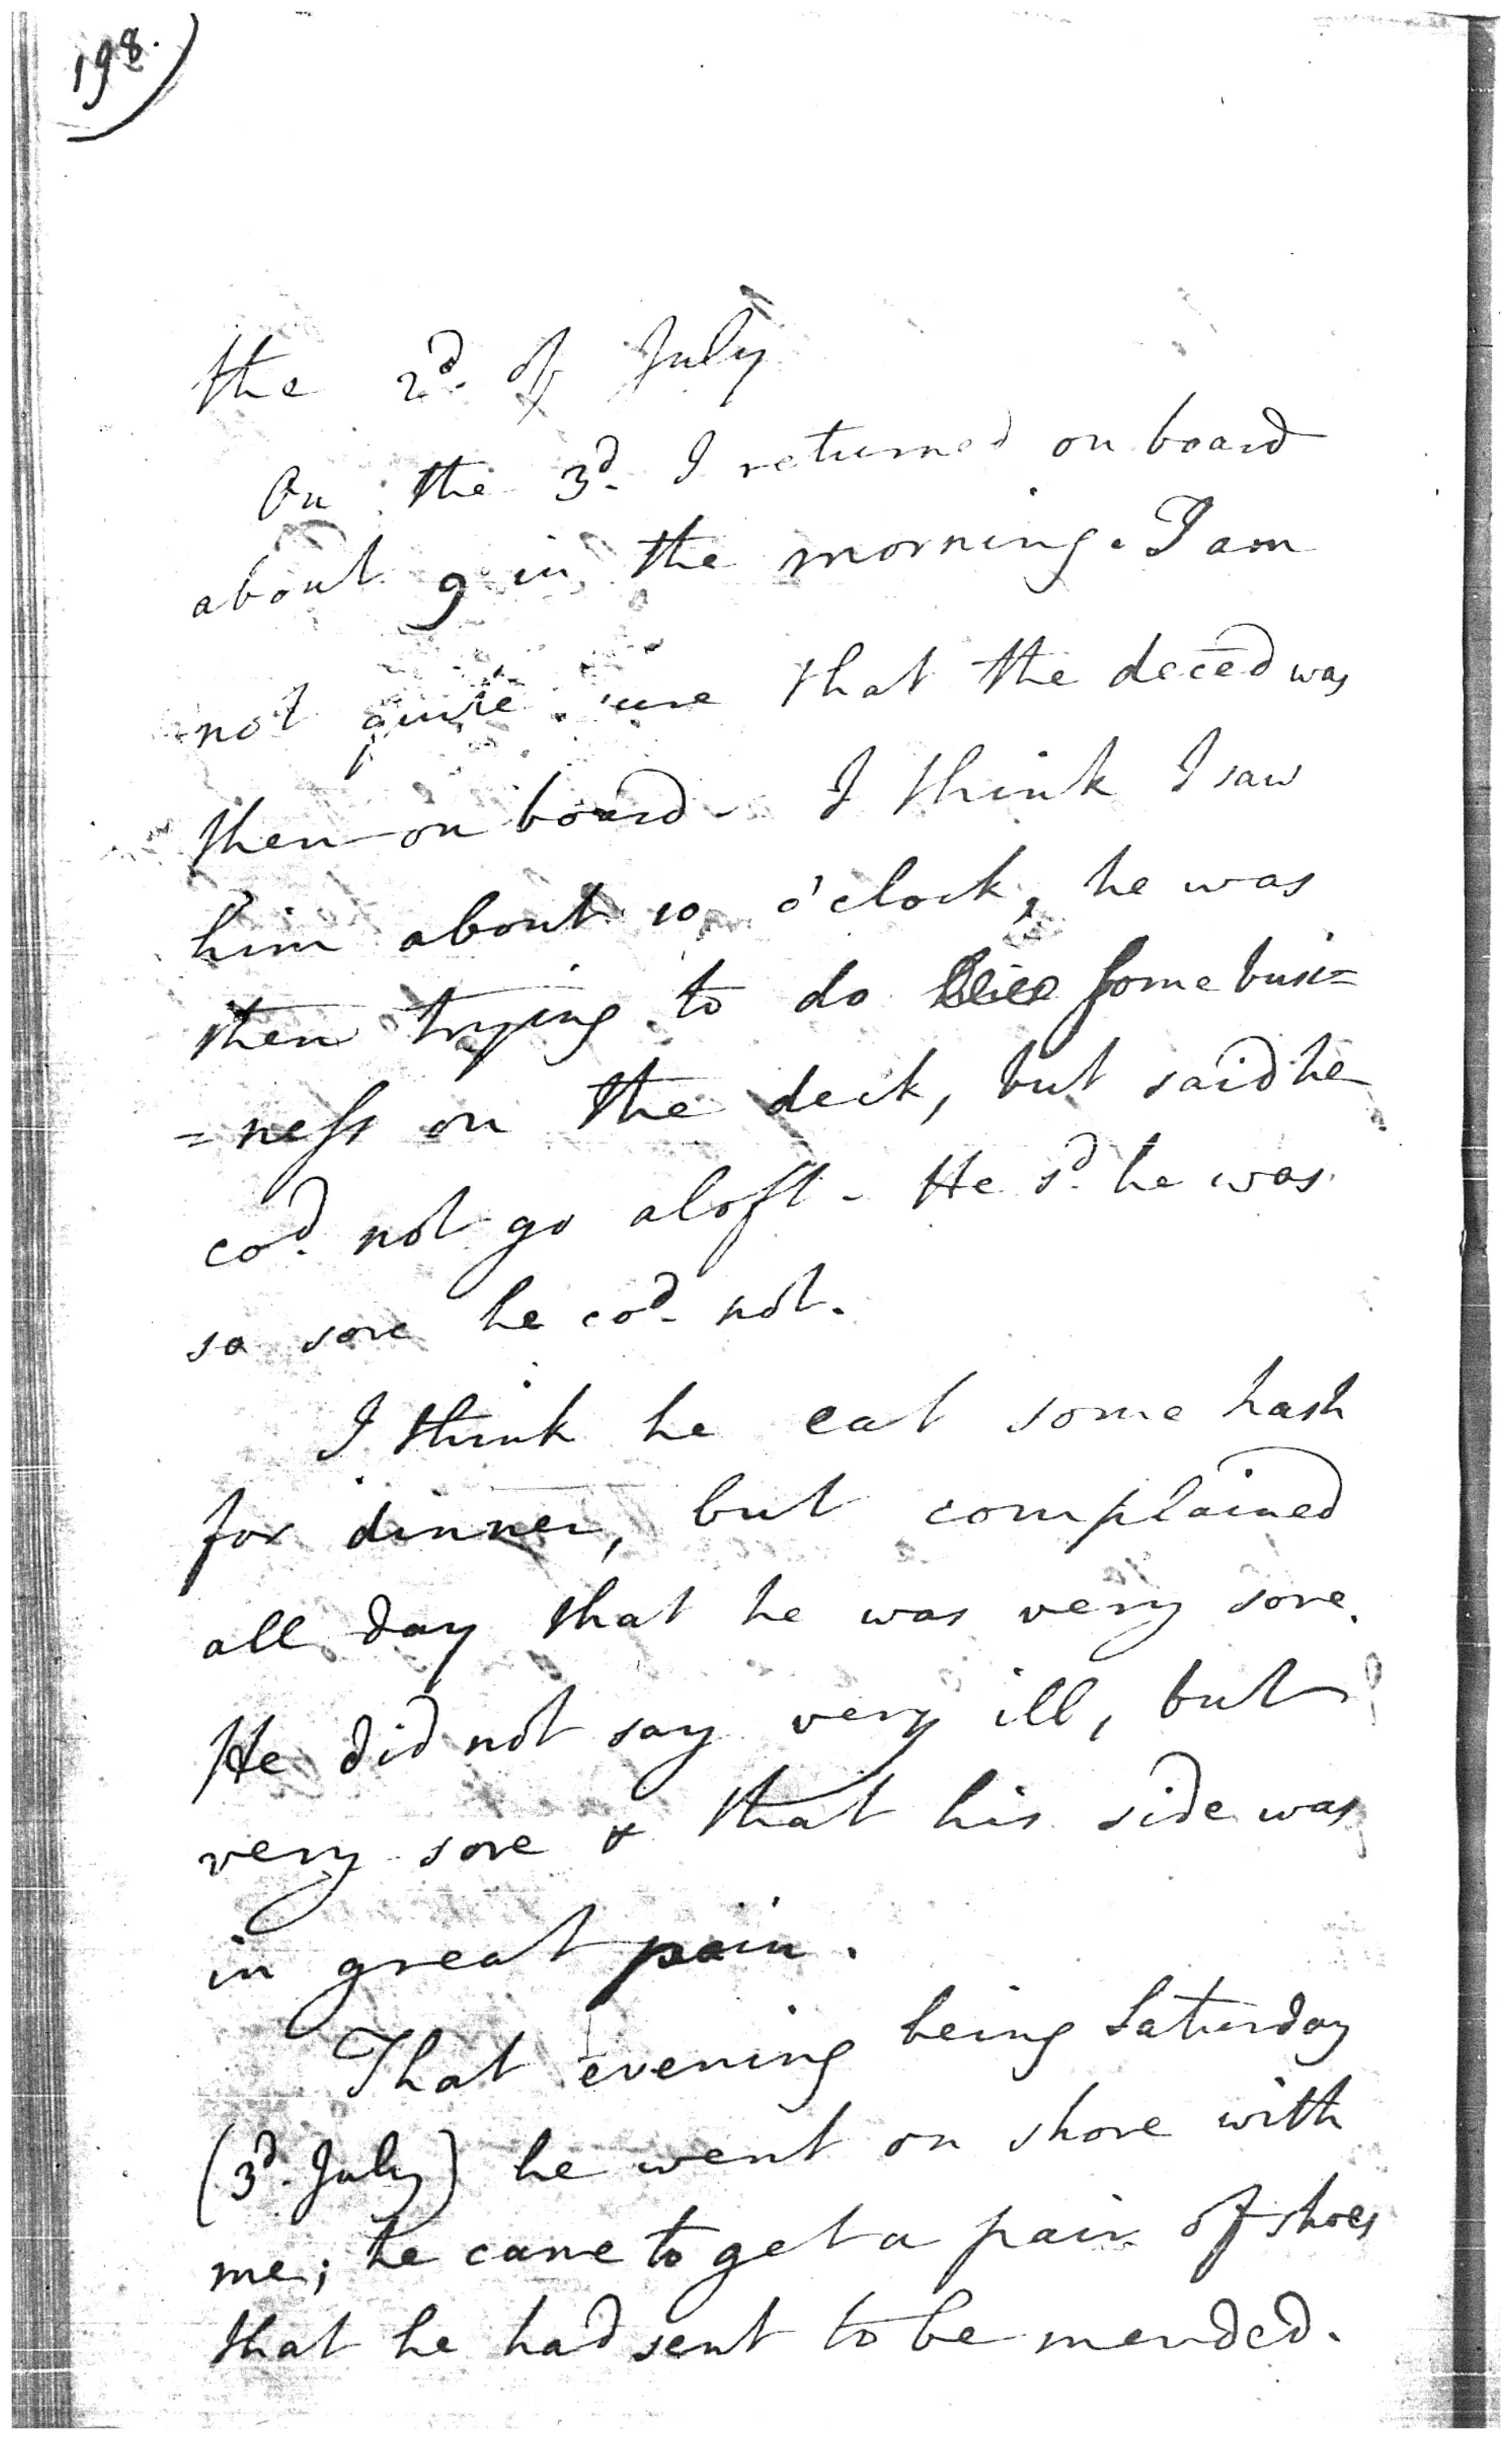 198.
the 2d. of July
On the 3d. I returned on board
about 9 in the morning. I am
not quite sure that the deced was
then on board - I think I saw
him about 10 o'clock, he was
then trying to do some busi=
=ness on the deck, but said he
cod. not go aloft - He sd. he was
so sore he cod. not.
I think he eat some hash
for dinner, but complained
all day that he was very sore.
He did not say very ill, but
very sore & that his side was
in great pain.
That evening being Saturday
(3d. July) he went on shore with
me; he came to get a pair of shoes
that he had sent to be mended.